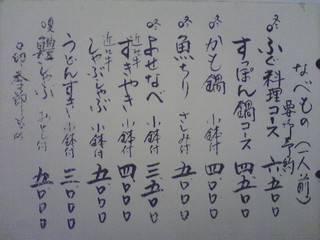 なべもの (一人前)
要御予約
冬 ふぐ料理コース 六、五〇〇
すっぽん鍋コース 四、五〇〇
冬 かも鍋 小鉢付 四、〇〇〇
冬 魚ちり さしみ付 五、〇〇〇
冬 よせなべ 小鉢付 三、五〇〇
近江牛 すきやき 小鉢付 四、〇〇〇
近江牛 しゃぶしゃぶ 小鉢付 五、〇〇〇
うどんすき 小鉢付 三、〇〇〇
鱧しゃぶ 五、〇〇〇